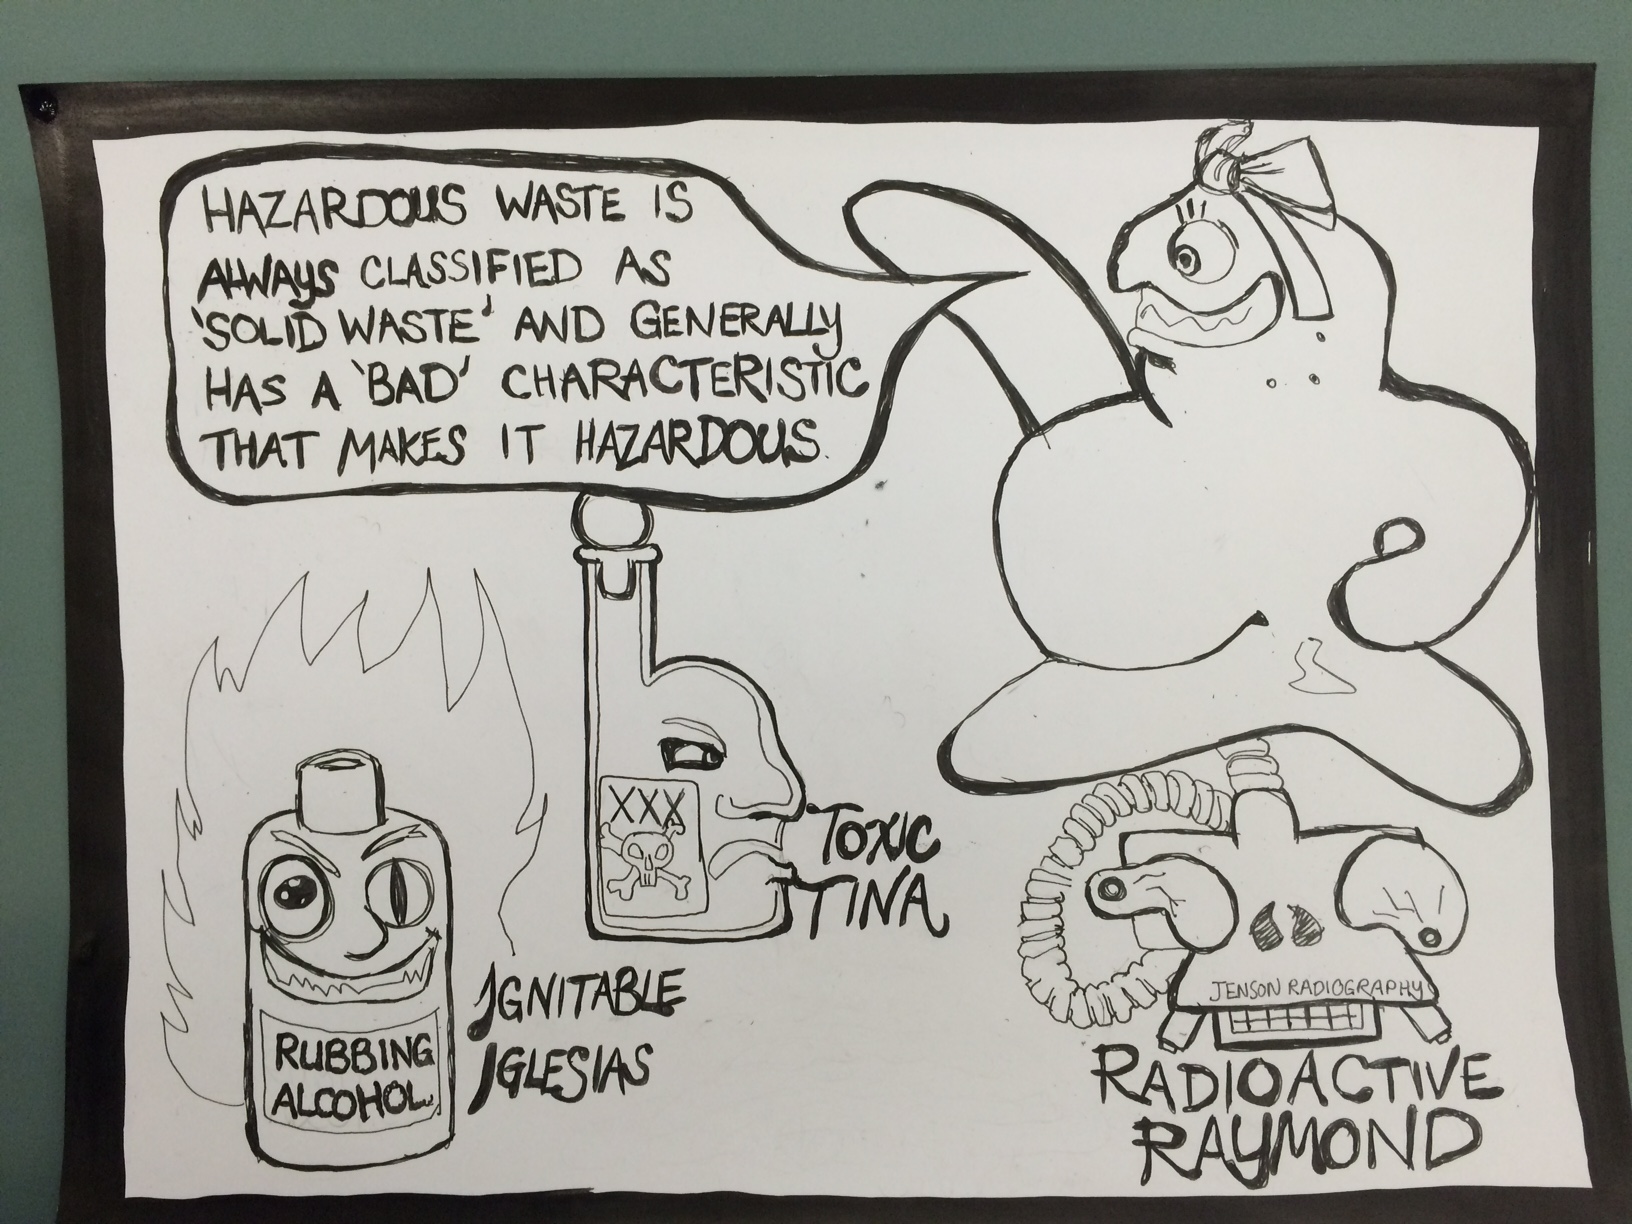 HAZARDOUS WASTE IS
ALWAYS CLASSIFIED AS
'SOLID WASTE' AND GENERALLY
HAS A 'BAD' CHARACTERISTIC
THAT MAKES IT HAZARDOUS.
XXX
TOXIC
TINA
IGNITABLE
IGLESIAS
RUBBING
ALCOHOL
JENSON RADIOGRAPHY
RADIOACTIVE
RAYMOND